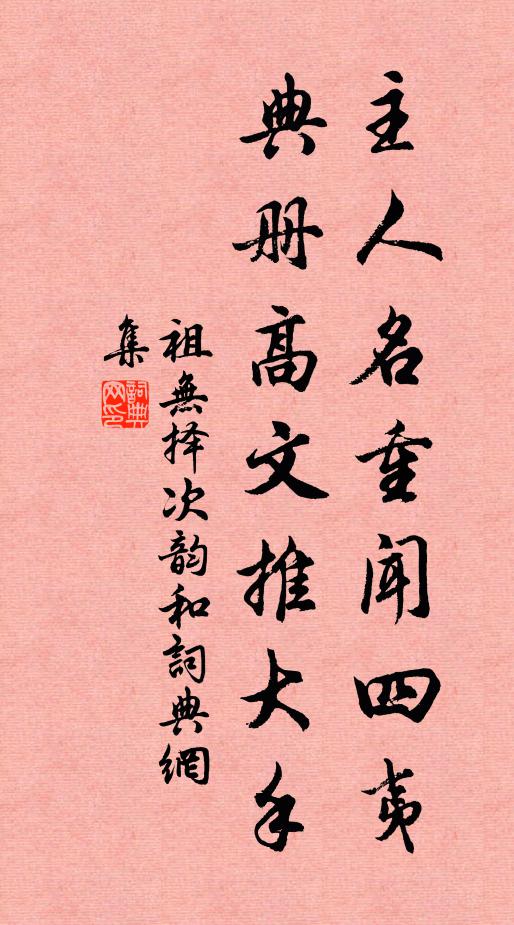 主人名重闻四夷
典册高文推大手
祖無择次韵和詞典網
集
詞典
网印